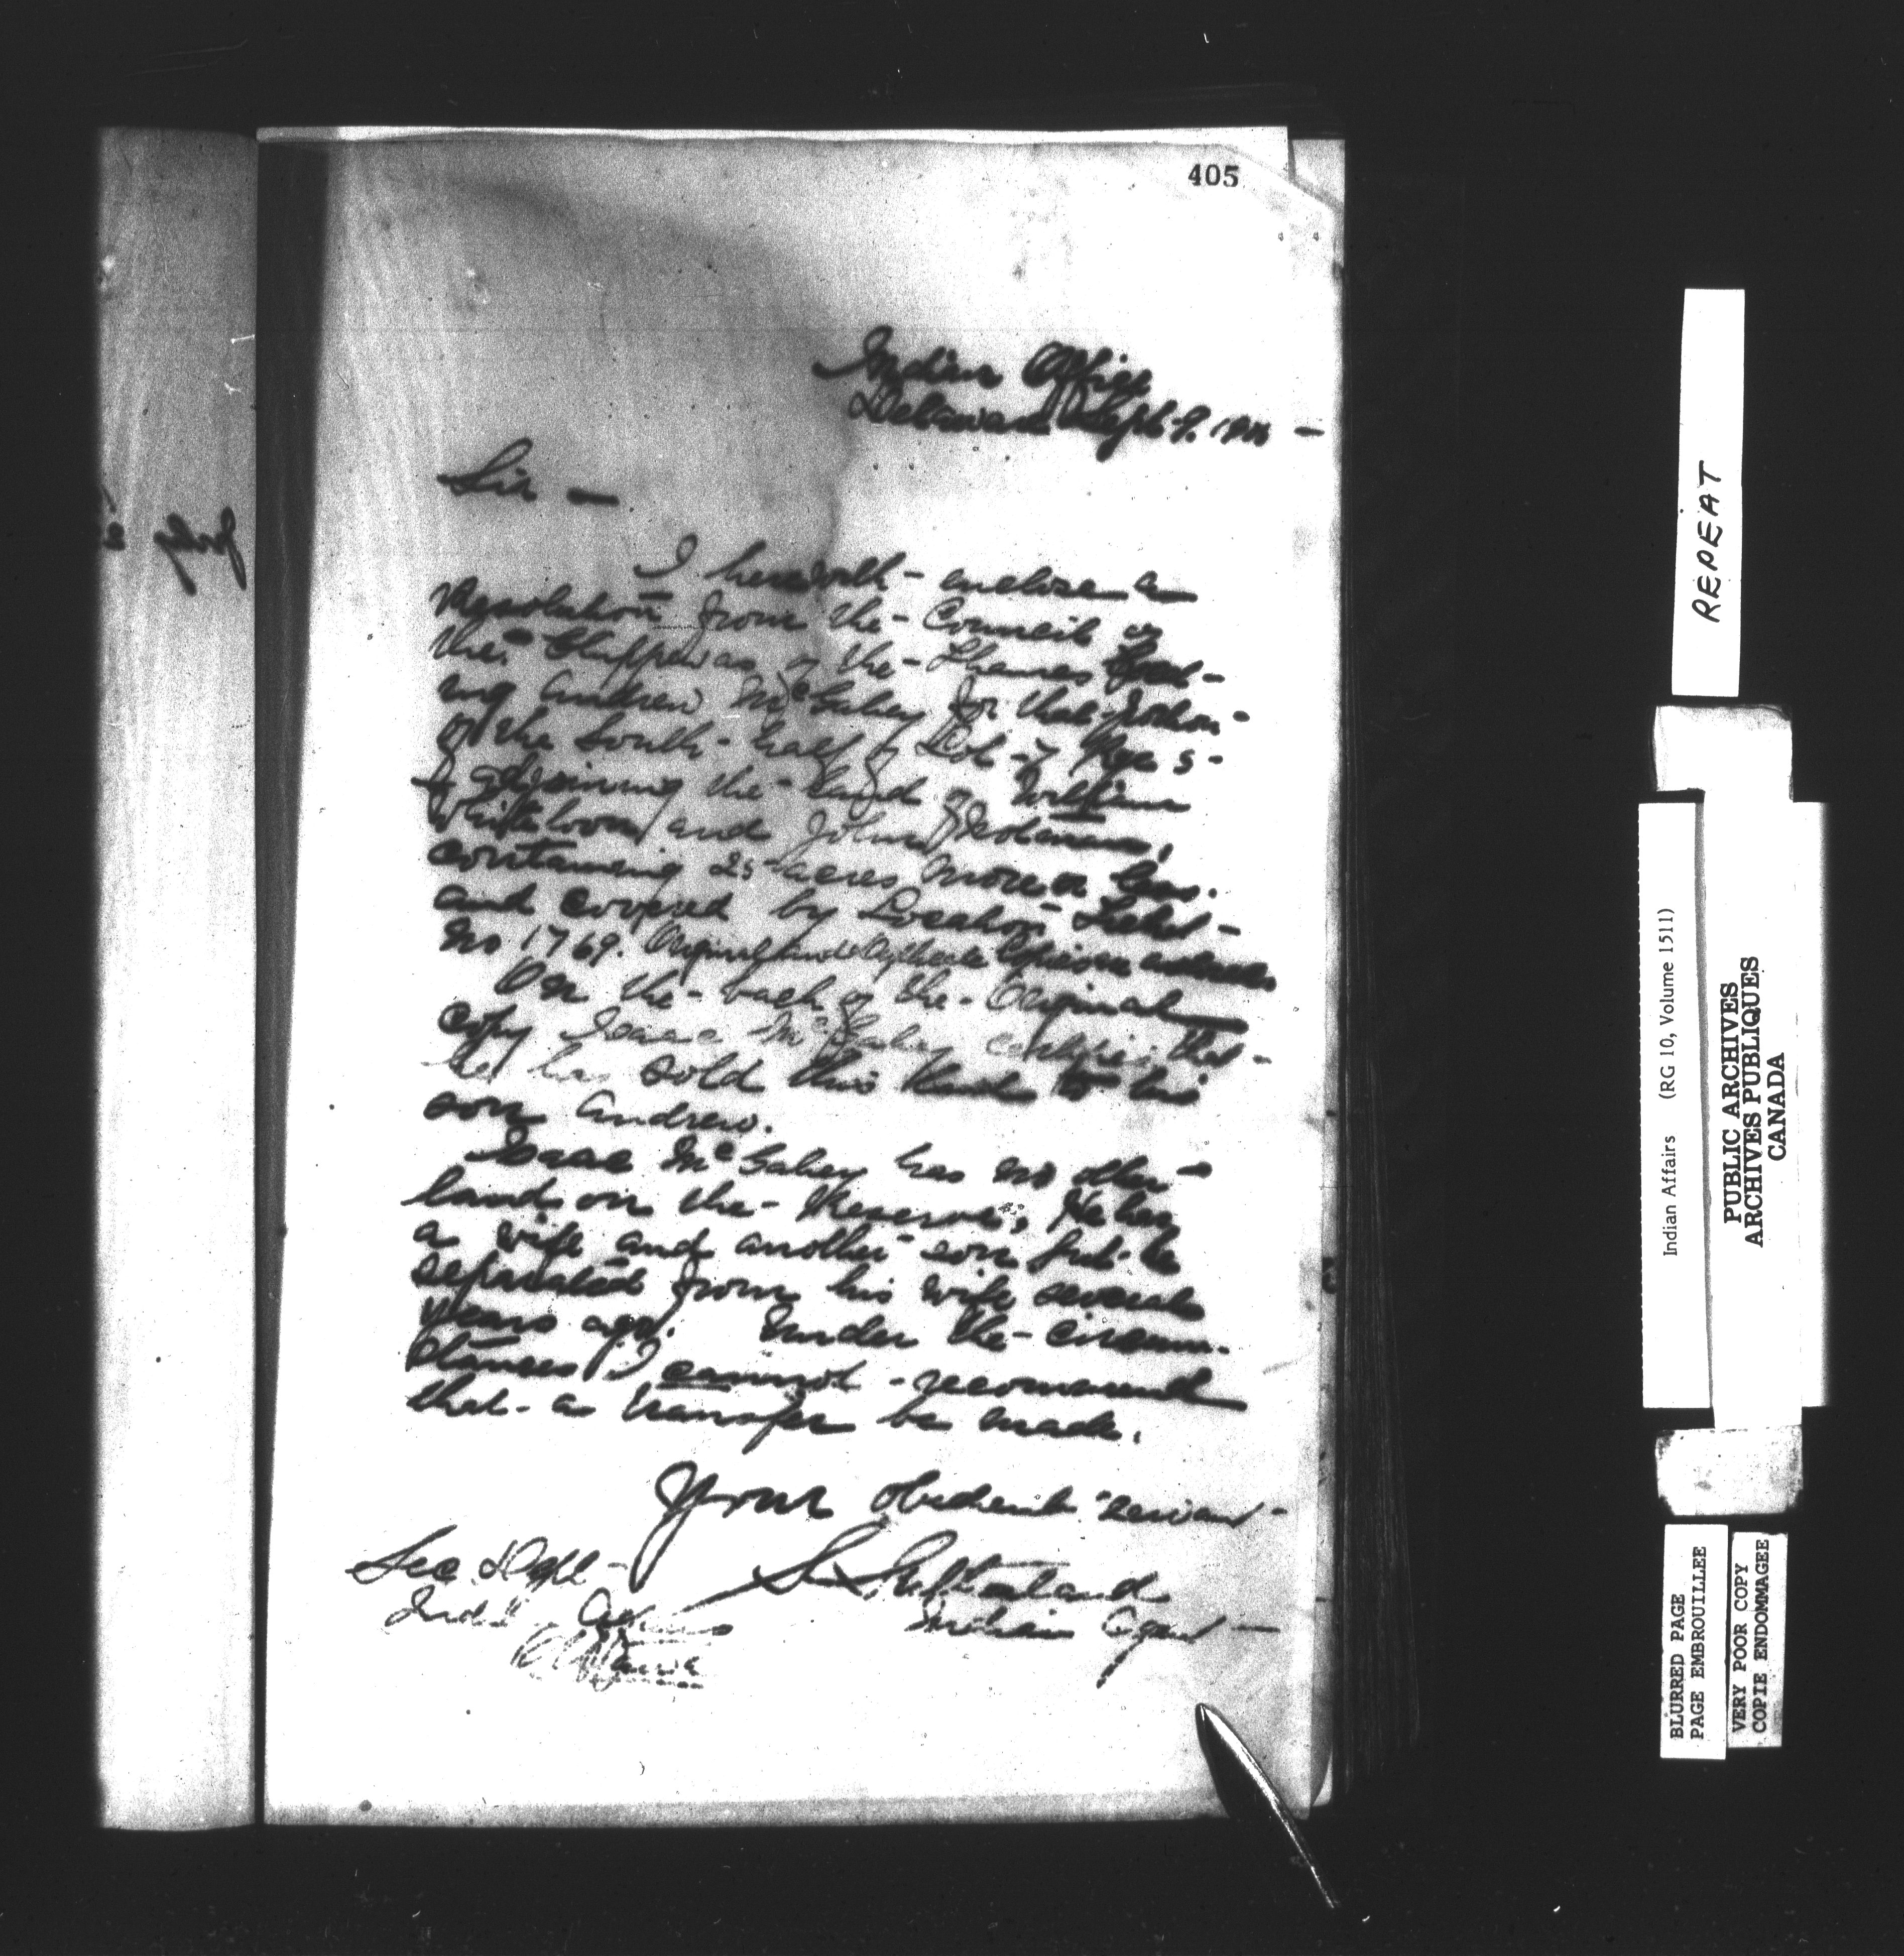 405
Indian Office
Delaware Sept 9.
Sir —
I herewith - enclose a
Resolution from the - Council of
the - Chippewas of the - Thames
ing Andrew McGahey for that - portion -
of the South - half of Lot - 7 Rge 5 -
adjoining the - land of William
Whiteloon and John
containing 25 acres more or less.
and covered by Location Ticket -
No 1769. Original and duplicate Copies enclosed
On the - back of the - Original
copy Isaac McGahey certifies that -
he has sold this land to his
son Andrew.
Isaac McGahey has no other -
land on the - Reserve; He has
a wife and another son but he
separated from his wife several
years ago. Under the - circum-
stances I cannot - recommend
that - a transfer be made.
Your obedient servant -
S. Sutherland
Indian Agent —
Sec Dept -
Ind
Ottawa
REPEAT
Indian Affairs (RG 10, Volume 1511)
PUBLIC ARCHIVES
ARCHIVES PUBLIQUES
CANADA
BLURRED PAGE
PAGE EMBROUILLEE
VERY POOR COPY
COPIE ENDOMMAGEE